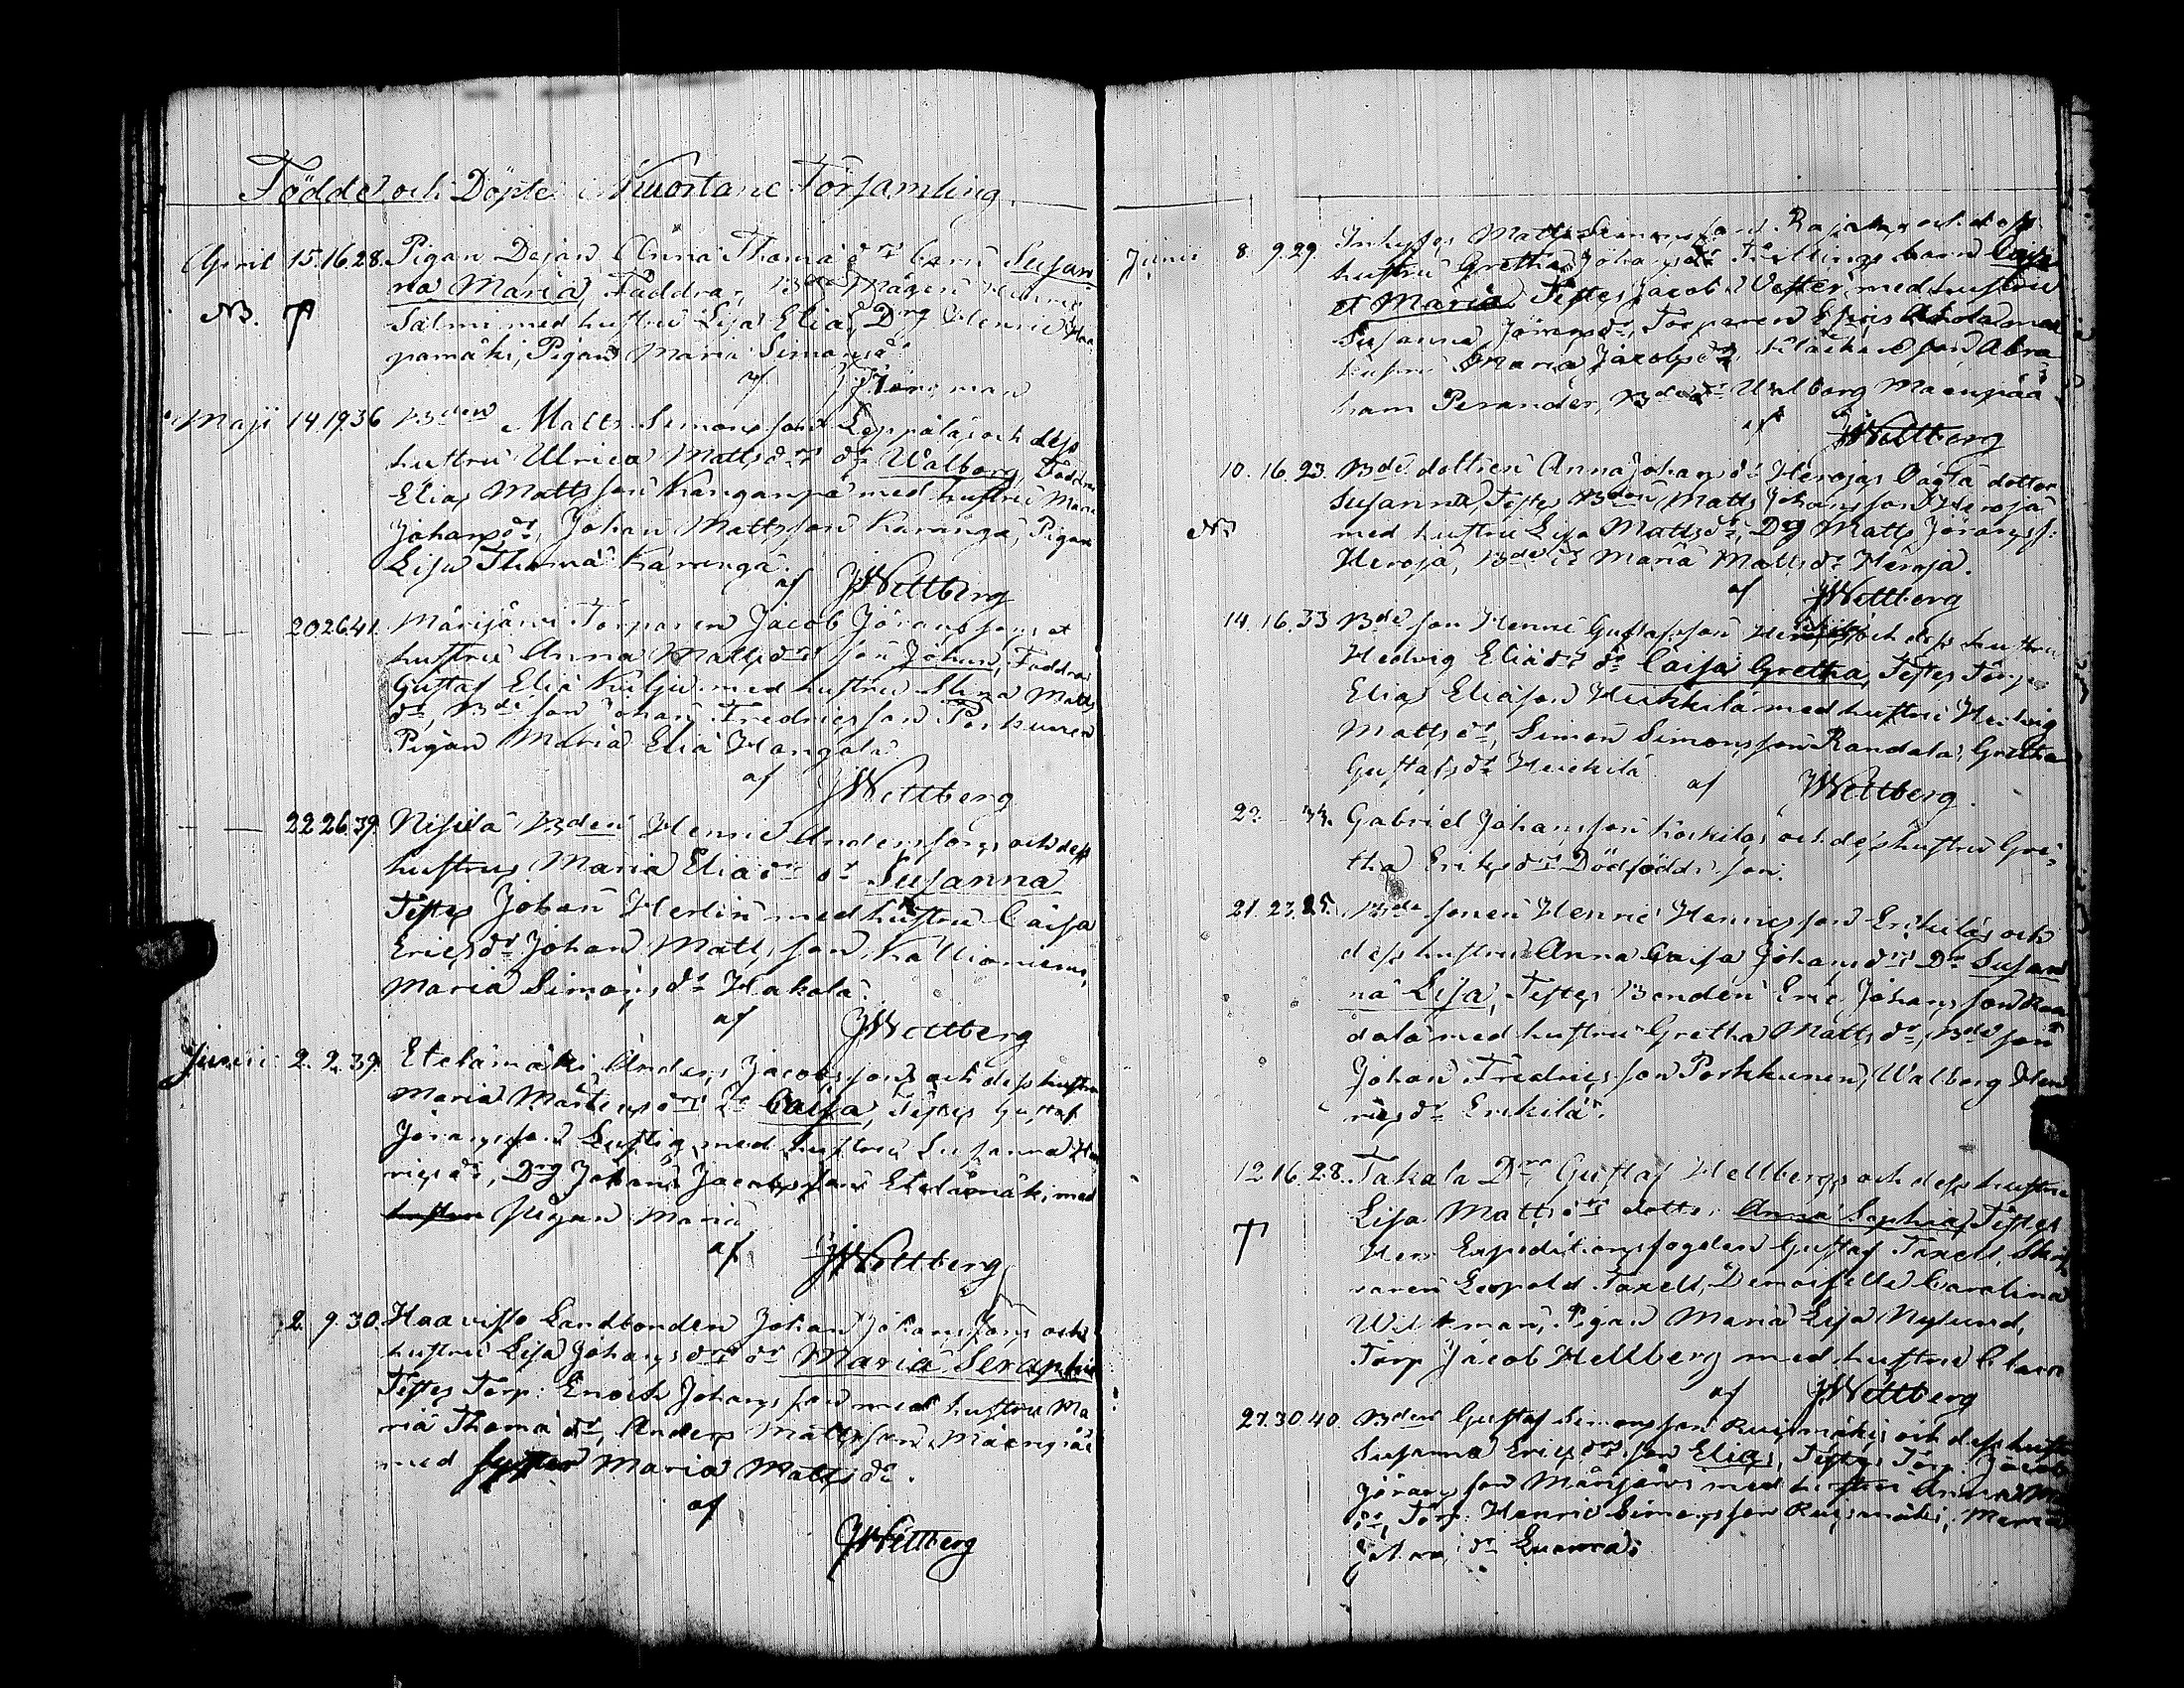 Födde och Döpte i Kuortane Församling.
April 15. 16. 28. Pigan Dejan Anna Thomædrs barn Susan
NB. na Maria, Faddrar, Mågen Henric
Salmi med hustru Lisa Eliædr, Drg Henric
pamäki, Pigan Maria Simonsdr
af
Maji 14 19 36 Bden Matts Simonsson Leppäläs och dess
hustru Ulrica Mattsdrs dr Walborg, Faddrar
Elias Mattsson Kanganpä med hustru Maria
Johansdr, Johan Mattsson Karanga, Pigan
Lisa Thomædr Karanga.
af JWettberg
20 26 41. Märijärvi Torparen Jacob Jöranssons et
hustru Anna Mattsdrs son Johan, Faddrar
Gustaf Eliæ Kulju med hustru Stina Matts
dr, Bde son Johan Fredricsson Porkunen
Pigan Maria Eliædr Hangala
af JWettberg
22 26 39. Nisula Bden Henric Anderssons och dess
hustrus Maria Eliædrs dr Susanna
Testes Johan Herlin med hustru Caisa
Ericsdr Johan Mattsson Kallioniemi,
Maria Simonsdr Hakola.
af JWettberg
Junii 2. 2. 39. Etelämäki Anders Jacobssons och dess hustru
Maria Mårtensdrs dr Caisa, Testes Gustaf
Jöransson Lustig med hustru Susanna Hen
ricsdr, Drg Johan Jacobsson Etelämäki med
hustru Pigan Maria
af JWettberg
2. 9. 30. Haavisto Landbonden Johan Johanssons och
hustru Lisa Johansdrs dr Maria Seraphia
Testes Torp: Enoch Johansson med hustru Ma
ria Thomædr, Anders Mattsson Mäenpää
med syster Maria Mattsdr.
af
JWettberg
Junii 8. 9. 29. Inhyses Matts Simonsson Rajala och dess
hustru Gretha Johansdrs Tvillinge barn Caisa
et Maria, Testes Jacob Vester med hustru
Susanna Jöransdr, Torparen Ahola med
hustru Maria Jacobsdr, Abra
ham Perander, Bdedr Walborg Mäenpää
af JWettberg
10. 16. 23. Bde dottren Anna Johansdr Herojas Oägta dotter
Susanna, Testes Bden Matts Johansson Heroja
NB med hustru Lisa Mattsdr, Drg Matts Jöranss:
Heroja, Bde dr Maria Mattsdr Heroja.
af JWettberg
14. 16. 33 Bde son Henric Gustafsson och dess hustru
Hedvig Eliædrs dr Caisa Gretha, Testes Torp.
Elias Eliæson Heikkilä med hustru Hedvig
Mattsdr, Simon Simonsson Randala, Gretha
Gustafsdr Heickilä
af JWettberg.
22. - 33. Gabriel Johansson Koskelas och dess hustru Gre
tha Ericsdrs Dödfödde son.
21. 23. 25. Bde sonen Henric Henricsson Erkiläs och
dess hustrus Anna Caisa Johansdrs Dr Susan
na Lisa, Testes Bonden Eric Johansson Ran
dala med hustru Gretha Mattsdr, Bde son
Johan Fredricsson Porkkunen, Walborg Hen
ricsdr Erkilä.
12. 16. 28. Takala Gustaf Hellbergs och dess hustru
Lisa Mattsdrs dotter Anna Sophia, Testes
Herr Expeditionsfogden Gustaf Taxell, Skrif
varen Leopold Taxell, Demoiselle Carolina
Wickman, Pigan Maria Lisa Nylund,
Torp Jacob Hellberg med hustru Clara
af JWettberg
27. 30. 40. Bden Gustaf Simonsson Ruismäkis och dess hustru
Susanna Ericsdrs son Elias, Testes Torp: Jacob
Jöransson Märijärvi med hustru Anna
dr, Torp. Henric Simonsson Ruismäki, Maria